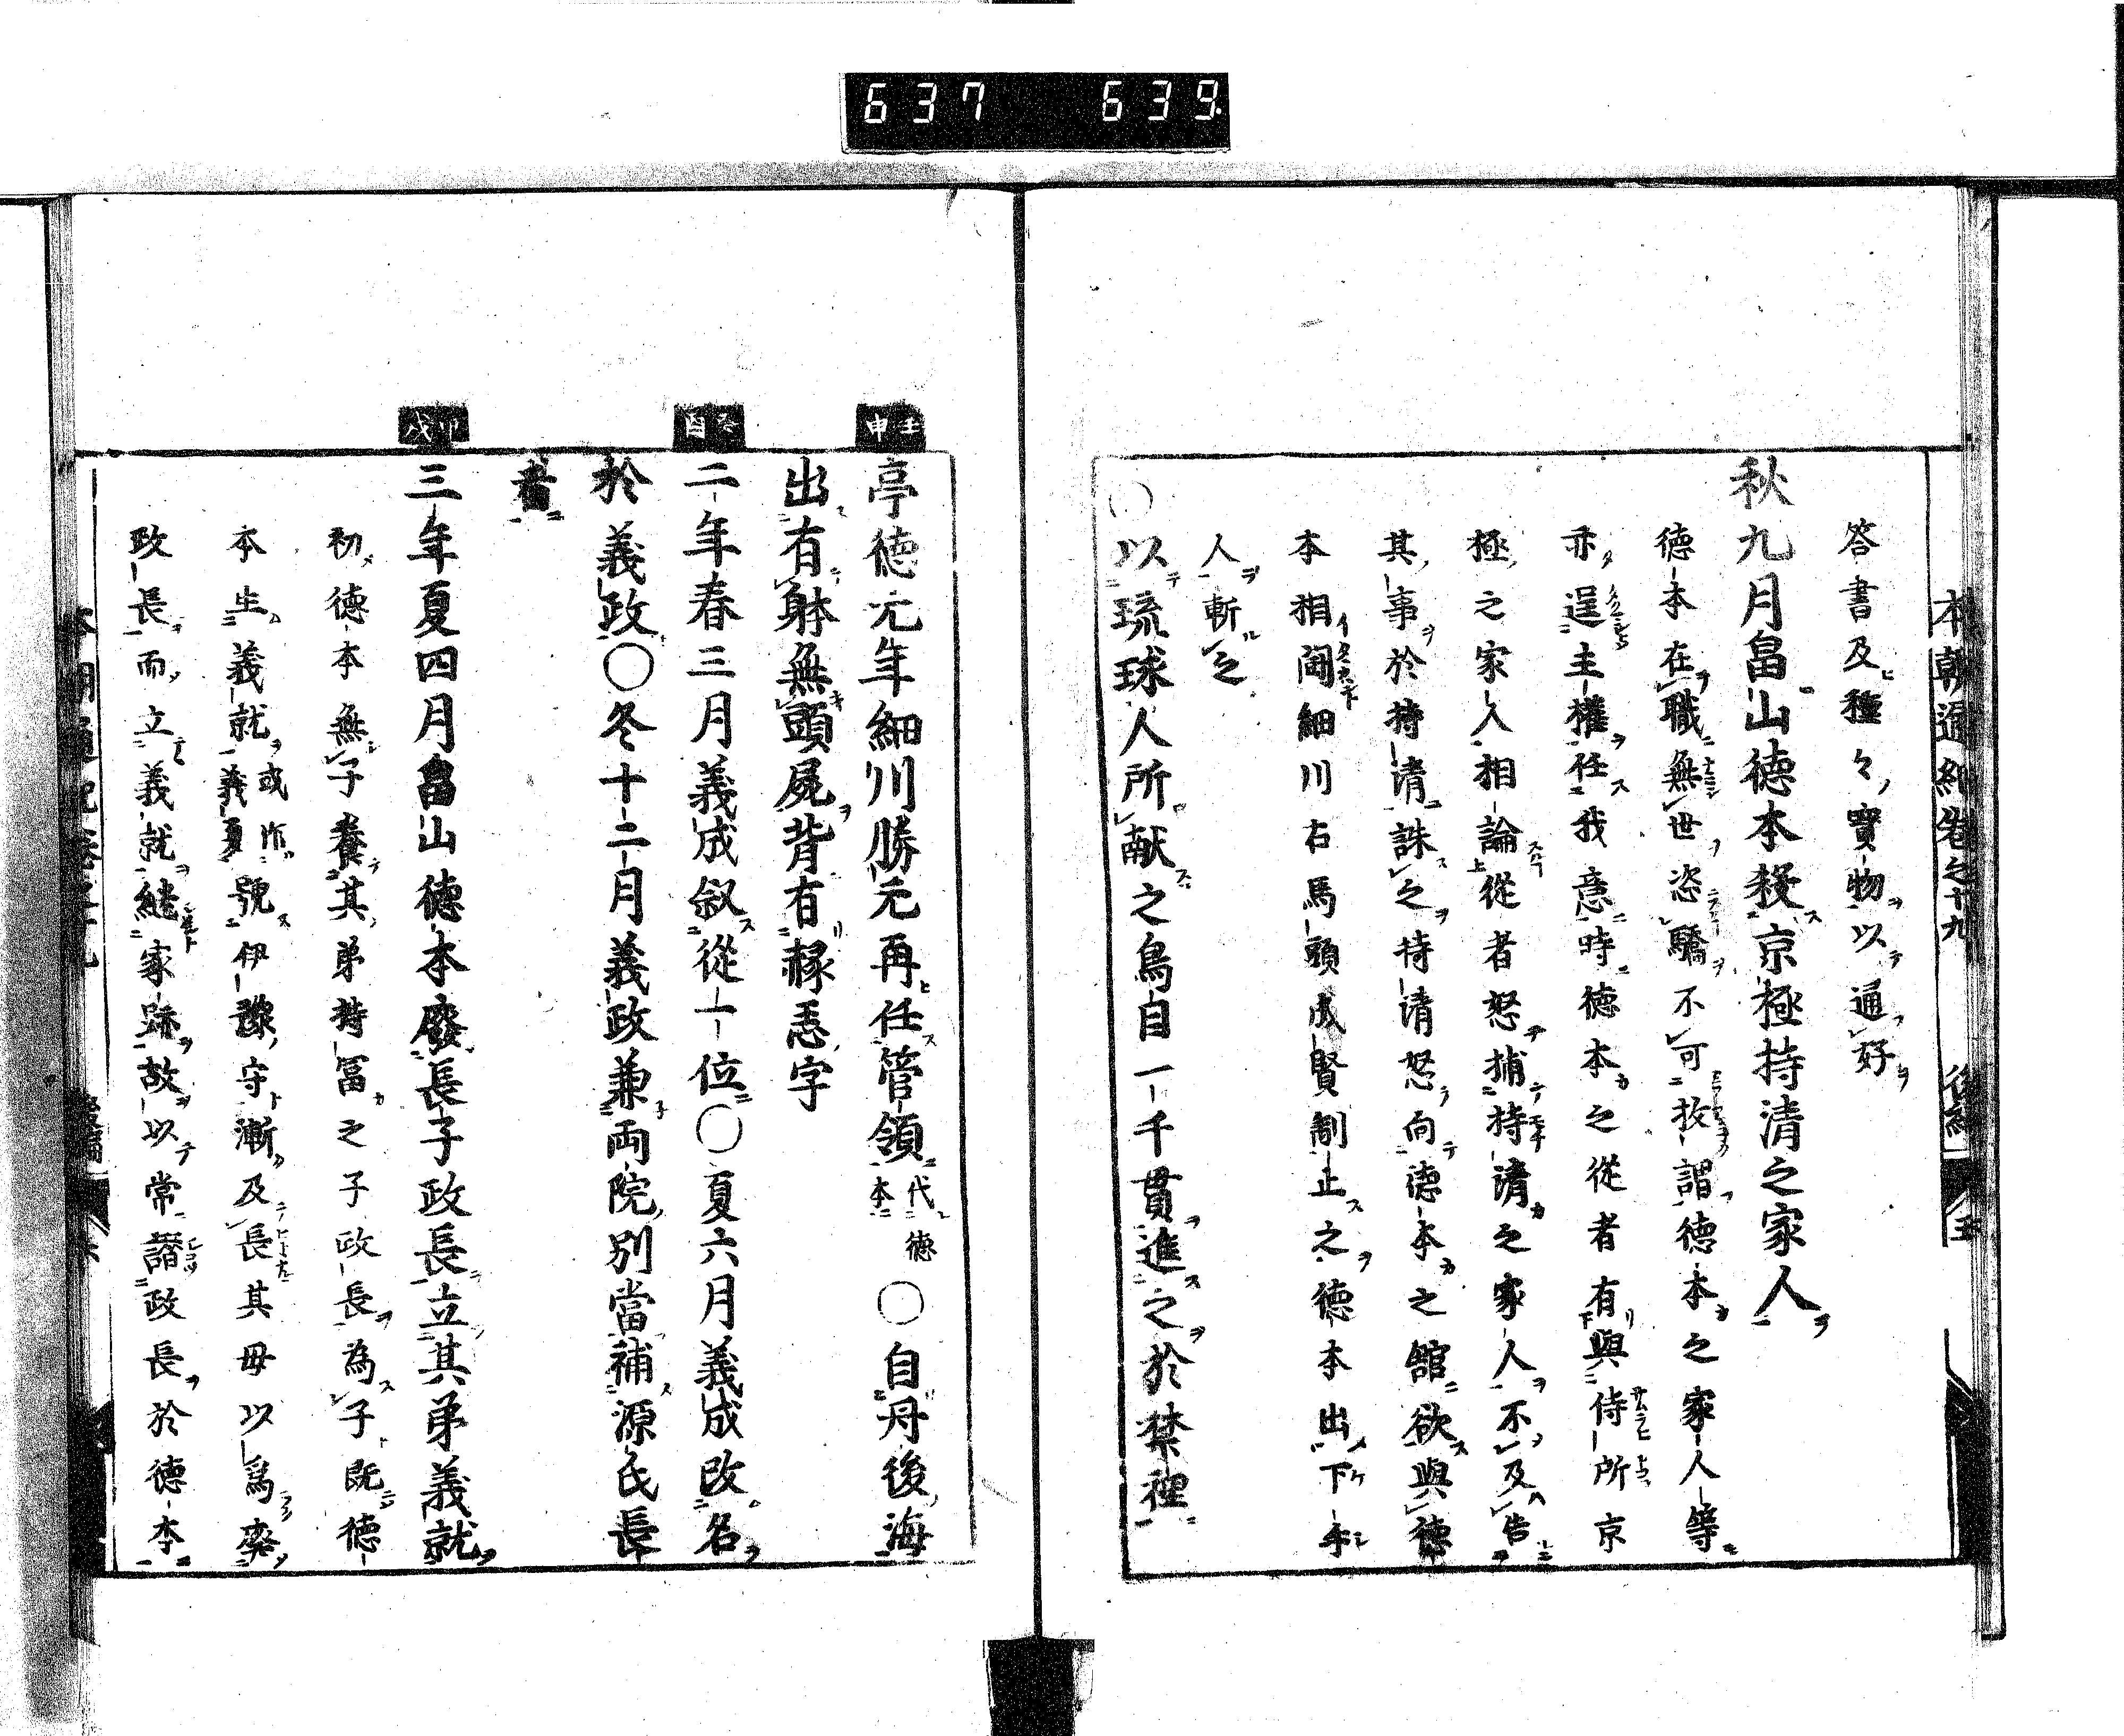 637 639
本朝通紀卷之十九 後編 五
答書及種々寳物以通好
秋九月畠山徳本殺京極持清之家人
徳本在職無世恣驕不可救謂徳本之家人等
亦逞主權任我意時徳本之從者有與侍所京
極之家人相論從者怒捕持清之家人不及告
其事於持清誅之持清怒向徳本之舘欲與徳
本相闘細川右馬頭成賢制止之徳本出下手
人斬之
○以琉球人所献之鳥目一千貫進之於禁裡
壬申
亭徳元年細川勝元再任管領代徳本○自丹後海
出有躰無頭屍背有縁恚字
癸酉
二年春三月義成叙從一位○夏六月義成改名
於義政○冬十二月義政兼両院別當補源氏長
者
甲戌
三年夏四月畠山徳本廢長子政長立其弟義就
初徳本無子養其弟持冨之子政長為子既徳
本生義就或作義夏號伊豫守漸及長其母以爲棄
政長而立義就継家跡故以常譖政長於徳本
本朝通紀卷之十九 後編 六